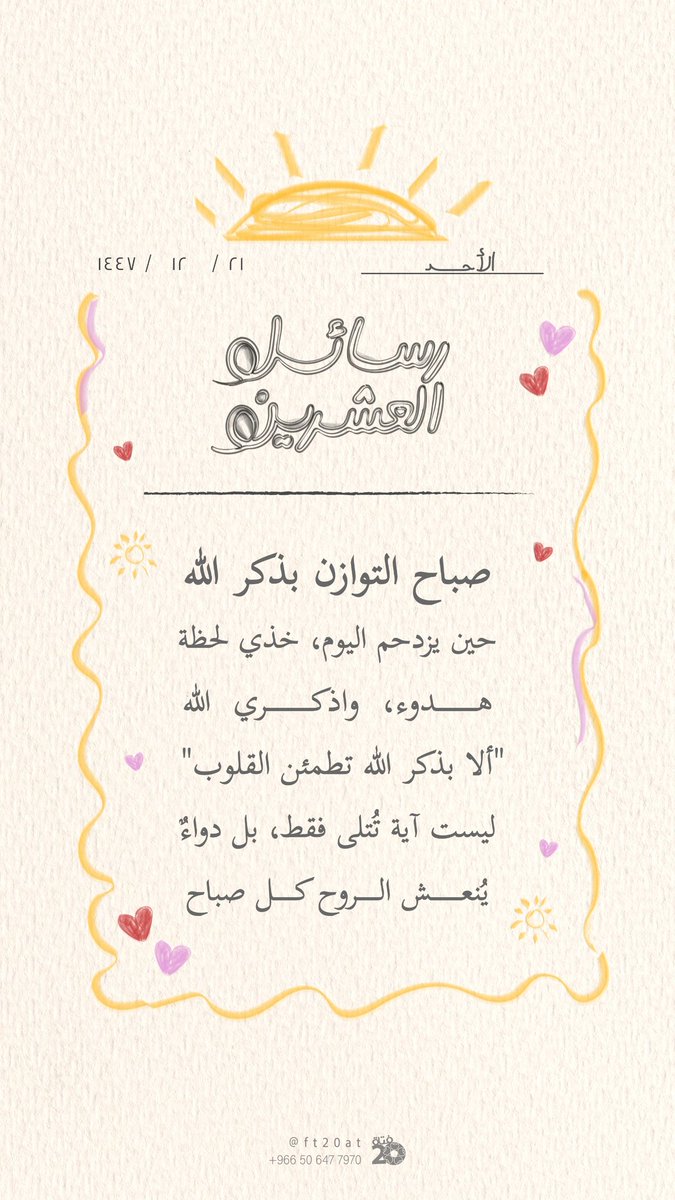 الأحد
٢١ / ١٢ / ١٤٤٧
رسائل
العشرين
صباح التوازن بذكر الله
حين يزدحم اليوم، خذي لحظة
هـــدوء، واذكـــري الله
"ألا بذكر الله تطمئن القلوب"
ليست آية تُتلى فقط، بل دواءٌ
يُنعـــش الـــروح كـــل صباح
@ft20at
+966 50 647 7970
فتة
20